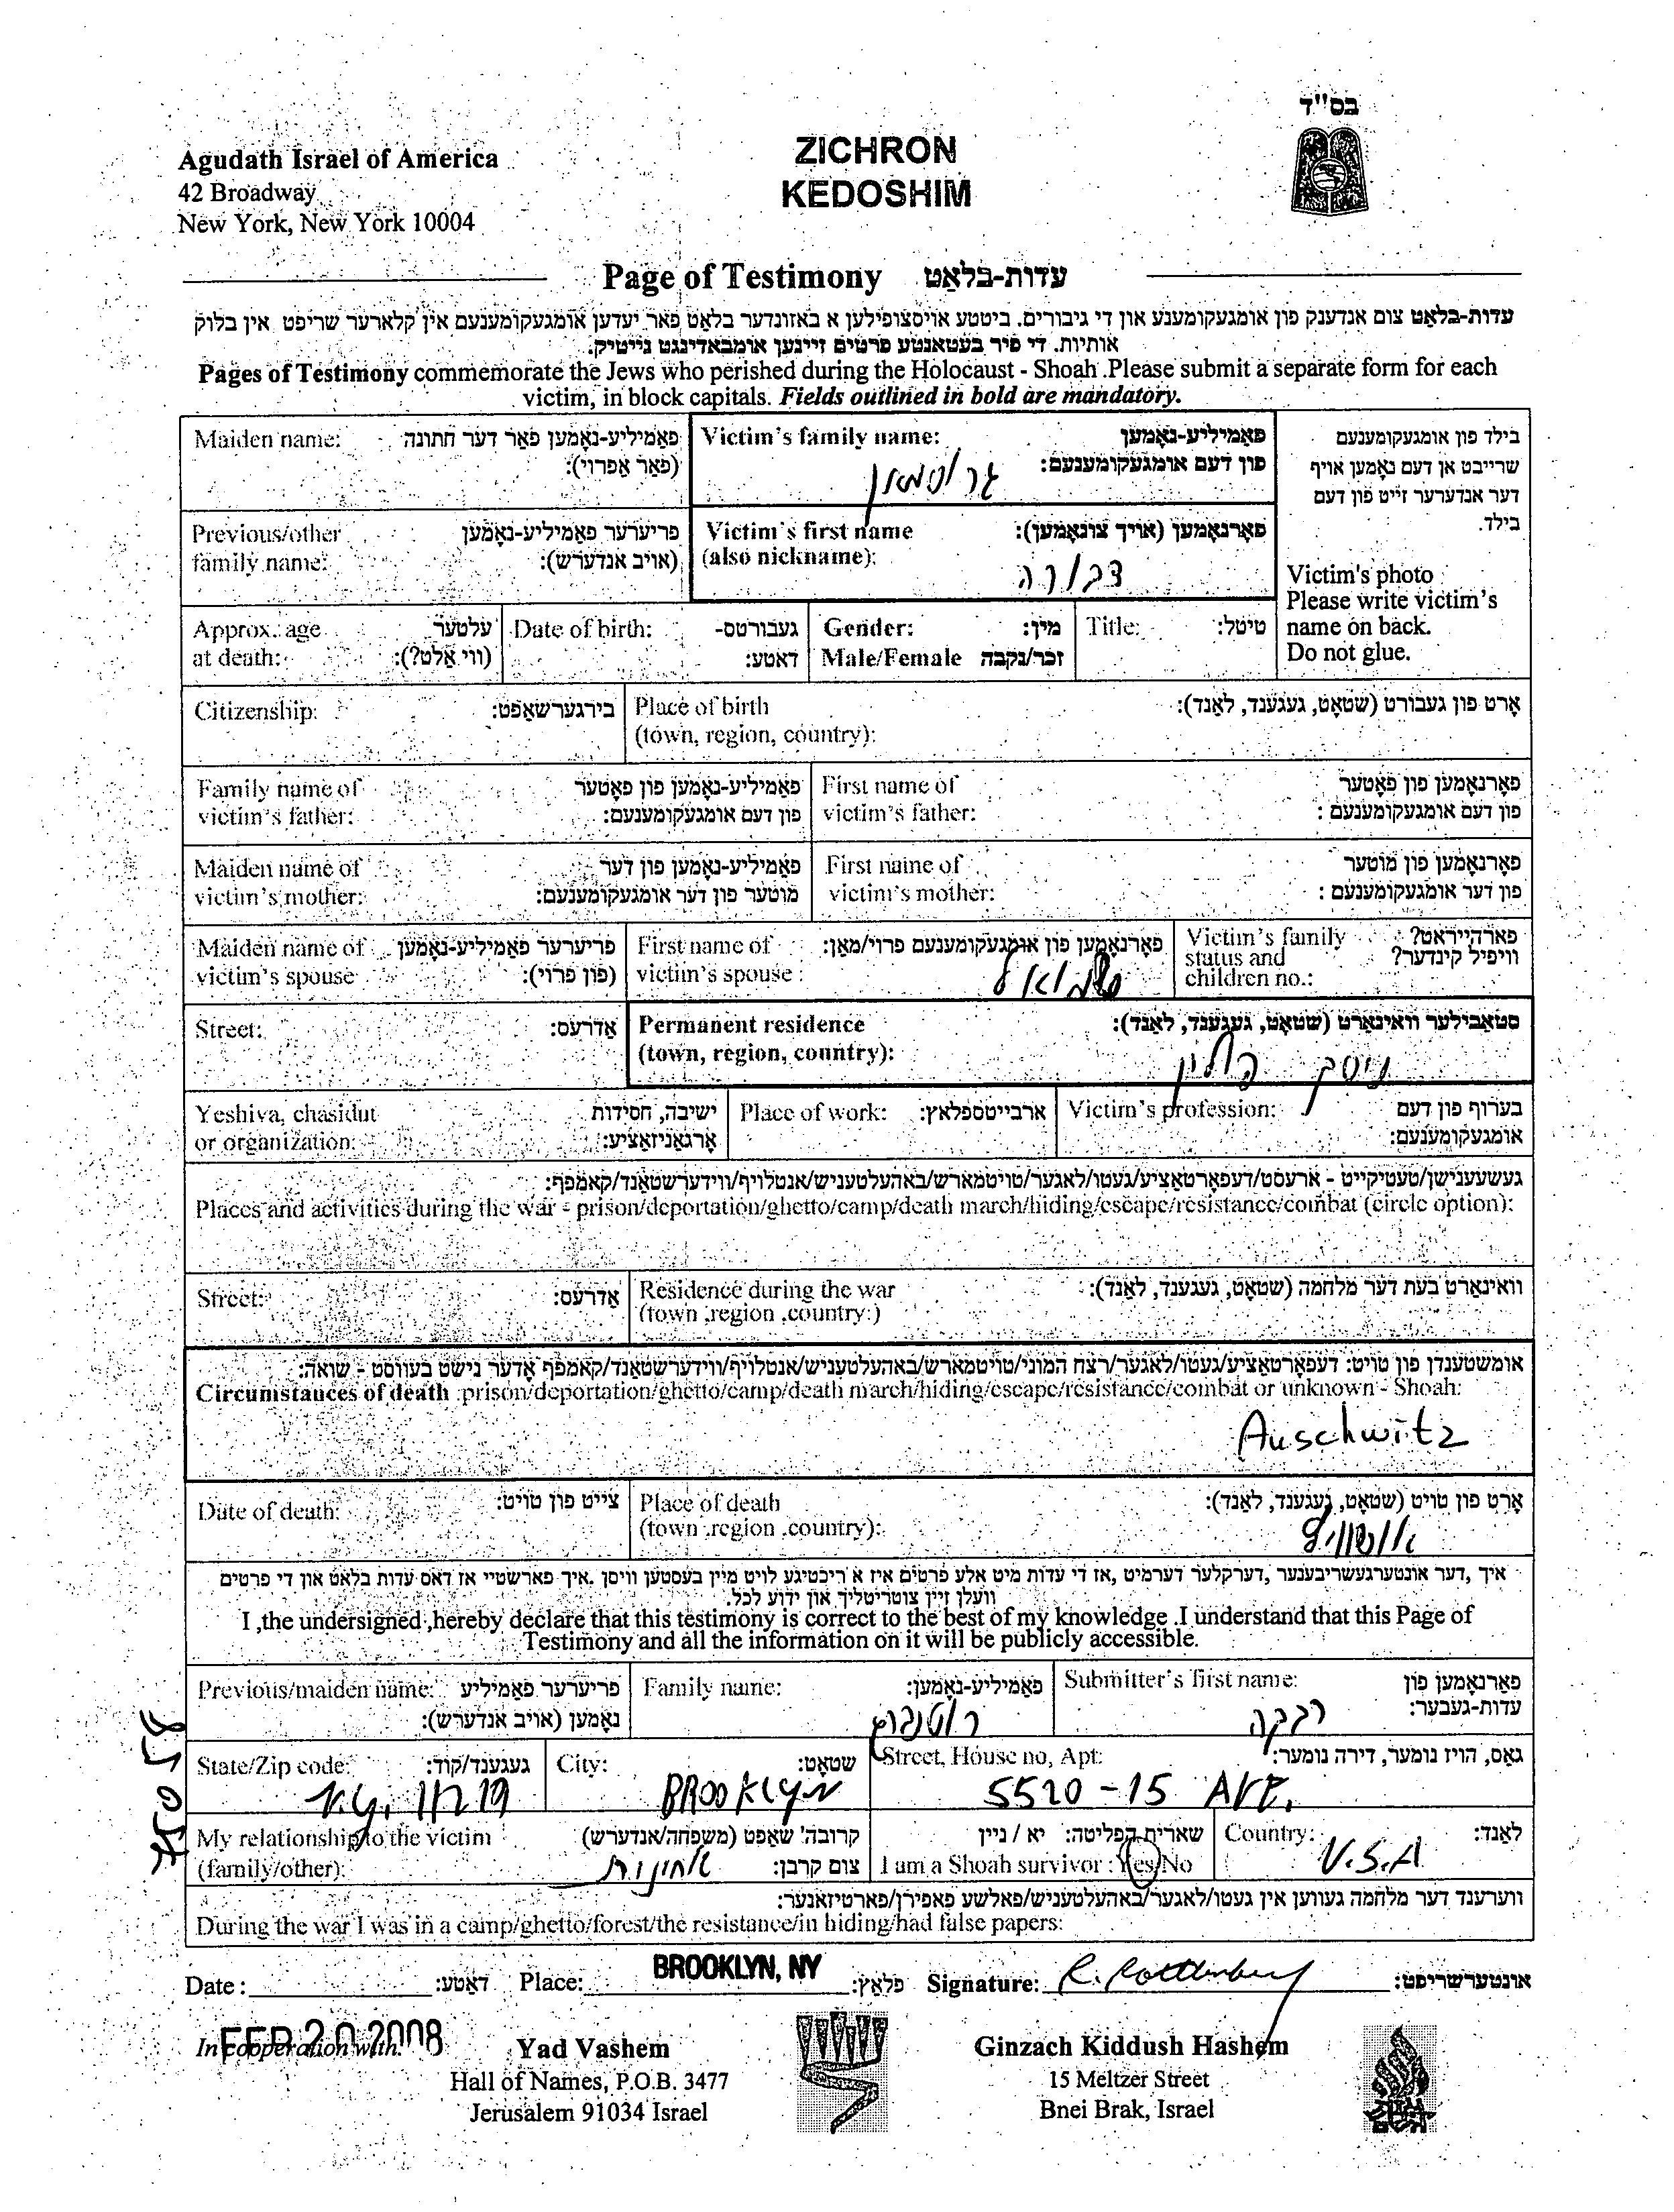 בס"ד
Agudath Israel of America
42 Broadway
New York, New York 10004
ZICHRON
KEDOSHIM
Page of Testimony עדות-בלאַט
עדות-בלאַט צום אנדענק פון אומגעקומענע און די גיבורים. ביטטע אויסצופילען א באזונדער בלאט פאר יעדען אומגעקומענעם אין קלארער שריפט אין בלוק
אותיות. די פיר בעטאנטע פרטים זיינען אומבאדינגט נייטיק.
Pages of Testimony commemorate the Jews who perished during the Holocaust - Shoah .Please submit a separate form for each
victim, in block capitals. Fields outlined in bold are mandatory.
Maiden name: פאַמיליע-נאָמען פאַר דער חתונה
(פאַר אַפרוי):
Victim's family name: פאַמיליע-נאָמען
פון דעם אומגעקומענעם:
גרוסמאן
בילד פון אומגעקומענעם
שרייבט אן דעם נאָמען אויף
דער אנדערער זייט פון דעם
בילד.
Victim's photo
Please write victim's
name on back.
Do not glue.
Previous/other פריערער פאַמיליע-נאָמען
family name: (אויב אנדערש):
Victim's first name פאָרנאָמען (אויך צונאָמען):
(also nickname):
דבורה
Approx. age עלטער
at death: (ווי אַלט?):
Date of birth: געבורטס-
דאטע:
Gender: מין:
Male/Female זכר/נקבה
Title: טיטל:
Citizenship: בירגערשאַפט:
Place of birth אָרט פון געבורט (שטאָט, געגענד, לאַנד):
(town, region, country):
Family name of פאַמיליע-נאָמען פון פאָטער
victim's father: פון דעם אומגעקומענעם:
First name of פאָרנאָמען פון פאָטער
victim's father: פון דעם אומגעקומענעם :
Maiden name of פאַמיליע-נאָמען פון דער
victim's mother: מוטער פון דער אומגעקומענעם:
First name of פאָרנאָמען פון מוטער
victim's mother: פון דער אומגעקומענעם :
Maiden name of פריערער פאַמיליע-נאָמען
victim's spouse (פון פרוי):
First name of פאָרנאָמען פון אומגעקומענעם פרוי/מאַן:
victim's spouse :
שמואל
Victim's family פארהייראט?
status and וויפיל קינדער?
children no.:
Street: אַדרעס:
Permanent residence סטאַבילער וואוינאָרט (שטאָט, געגענד, לאַנד):
(town, region, country):
ניסק פולין
Yeshiva, chasidut ישיבה, חסידות
or organization: אָרגאַניזאַציע:
Place of work: ארבייטספלאץ:
Victim's profession: בערוף פון דעם
אומגעקומענעם:
געשעענישן/טעטיקייט - ארעסט/דעפאָרטאַציע/געטו/לאגער/טויטמארש/באהעלטעניש/אנטלויף/ווידערשטאַנד/קאַמפף:
Places and activities during the war - prison/deportation/ghetto/camp/death march/hiding/escape/resistance/combat (circle option):
Street: אַדרעס:
Residence during the war וואינאָרט בעת דער מלחמה (שטאָט, געגענד, לאַנד):
(town ,region ,country:)
אומשטענדן פון טויט: דעפאָרטאַציע/געטו/לאַגער/רצח המוני/טויטמארש/באַהעלטעניש/אנטלויף/ווידערשטאַנד/קאמפף אָדער נישט בעוווסט - שואה:
Circumstances of death :prison/deportation/ghetto/camp/death march/hiding/escape/resistance/combat or unknown - Shoah:
Auschwitz
Date of death: צייט פון טויט:
Place of death אָרט פון טויט (שטאָט, געגענד, לאַנד):
(town ,region ,country):
אושוויץ
איך ,דער אונטערגעשריבענער ,דערקלער דערמיט ,אז די עדות מיט אלע פרטים איז א ריכטיגע לויט מיין בעסטען וויסן .איך פארשטיי אז דאס עדות בלאט און די פרטים
וועלן זיין צוטריטליך און ידוע לכל.
I ,the undersigned ,hereby declare that this testimony is correct to the best of my knowledge .I understand that this Page of
Testimony and all the information on it will be publicly accessible.
Previous/maiden name: פריערער פאַמיליע
נאָמען (אויב אנדערש):
Family name: פאַמיליע-נאָמען:
רוטנברג
Submitter's first name: פאָרנאָמען פון
עדות-געבער:
רבקה
State/Zip code: געגענד/קוד:
N.Y. 11219
City: שטאָט:
BROOKLYN
Street, House no, Apt: גאַס, הויז נומער, דירה נומער:
5520 - 15 AVE.
My relationship to the victim קרובה' שאַפט (משפחה/אנדערש)
(family/other): צום קרבן:
אחינות
שארית הפליטה: יא / ניין
I am a Shoah survivor : Yes/No
Country: לאַנד:
U.S.A
ווערענד דער מלחמה געווען אין געטו/לאגער/באהעלטעניש/פאלשע פאפירן/פארטיזאנער:
During the war I was in a camp/ghetto/forest/the resistance/in hiding/had false papers:
Date : דאטע: Place: BROOKLYN, NY פלאץ: Signature: R. Rottenberg אונטערשריפט:
FEB 20 2008
In cooperation with:
Yad Vashem
Hall of Names, P.O.B. 3477
Jerusalem 91034 Israel
Ginzach Kiddush Hashem
15 Meltzer Street
Bnei Brak, Israel